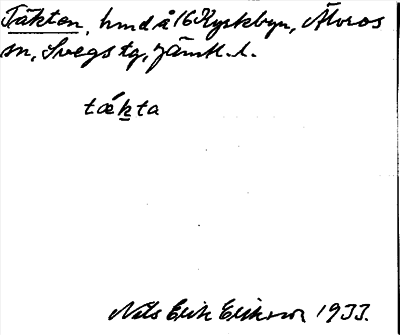 Täkten, hmd å 16 Kyrkbyn, Älvros
sn, Svegs tg, Jämtl. l.
tǽḵta
Nils Erik Eriksson 1933.